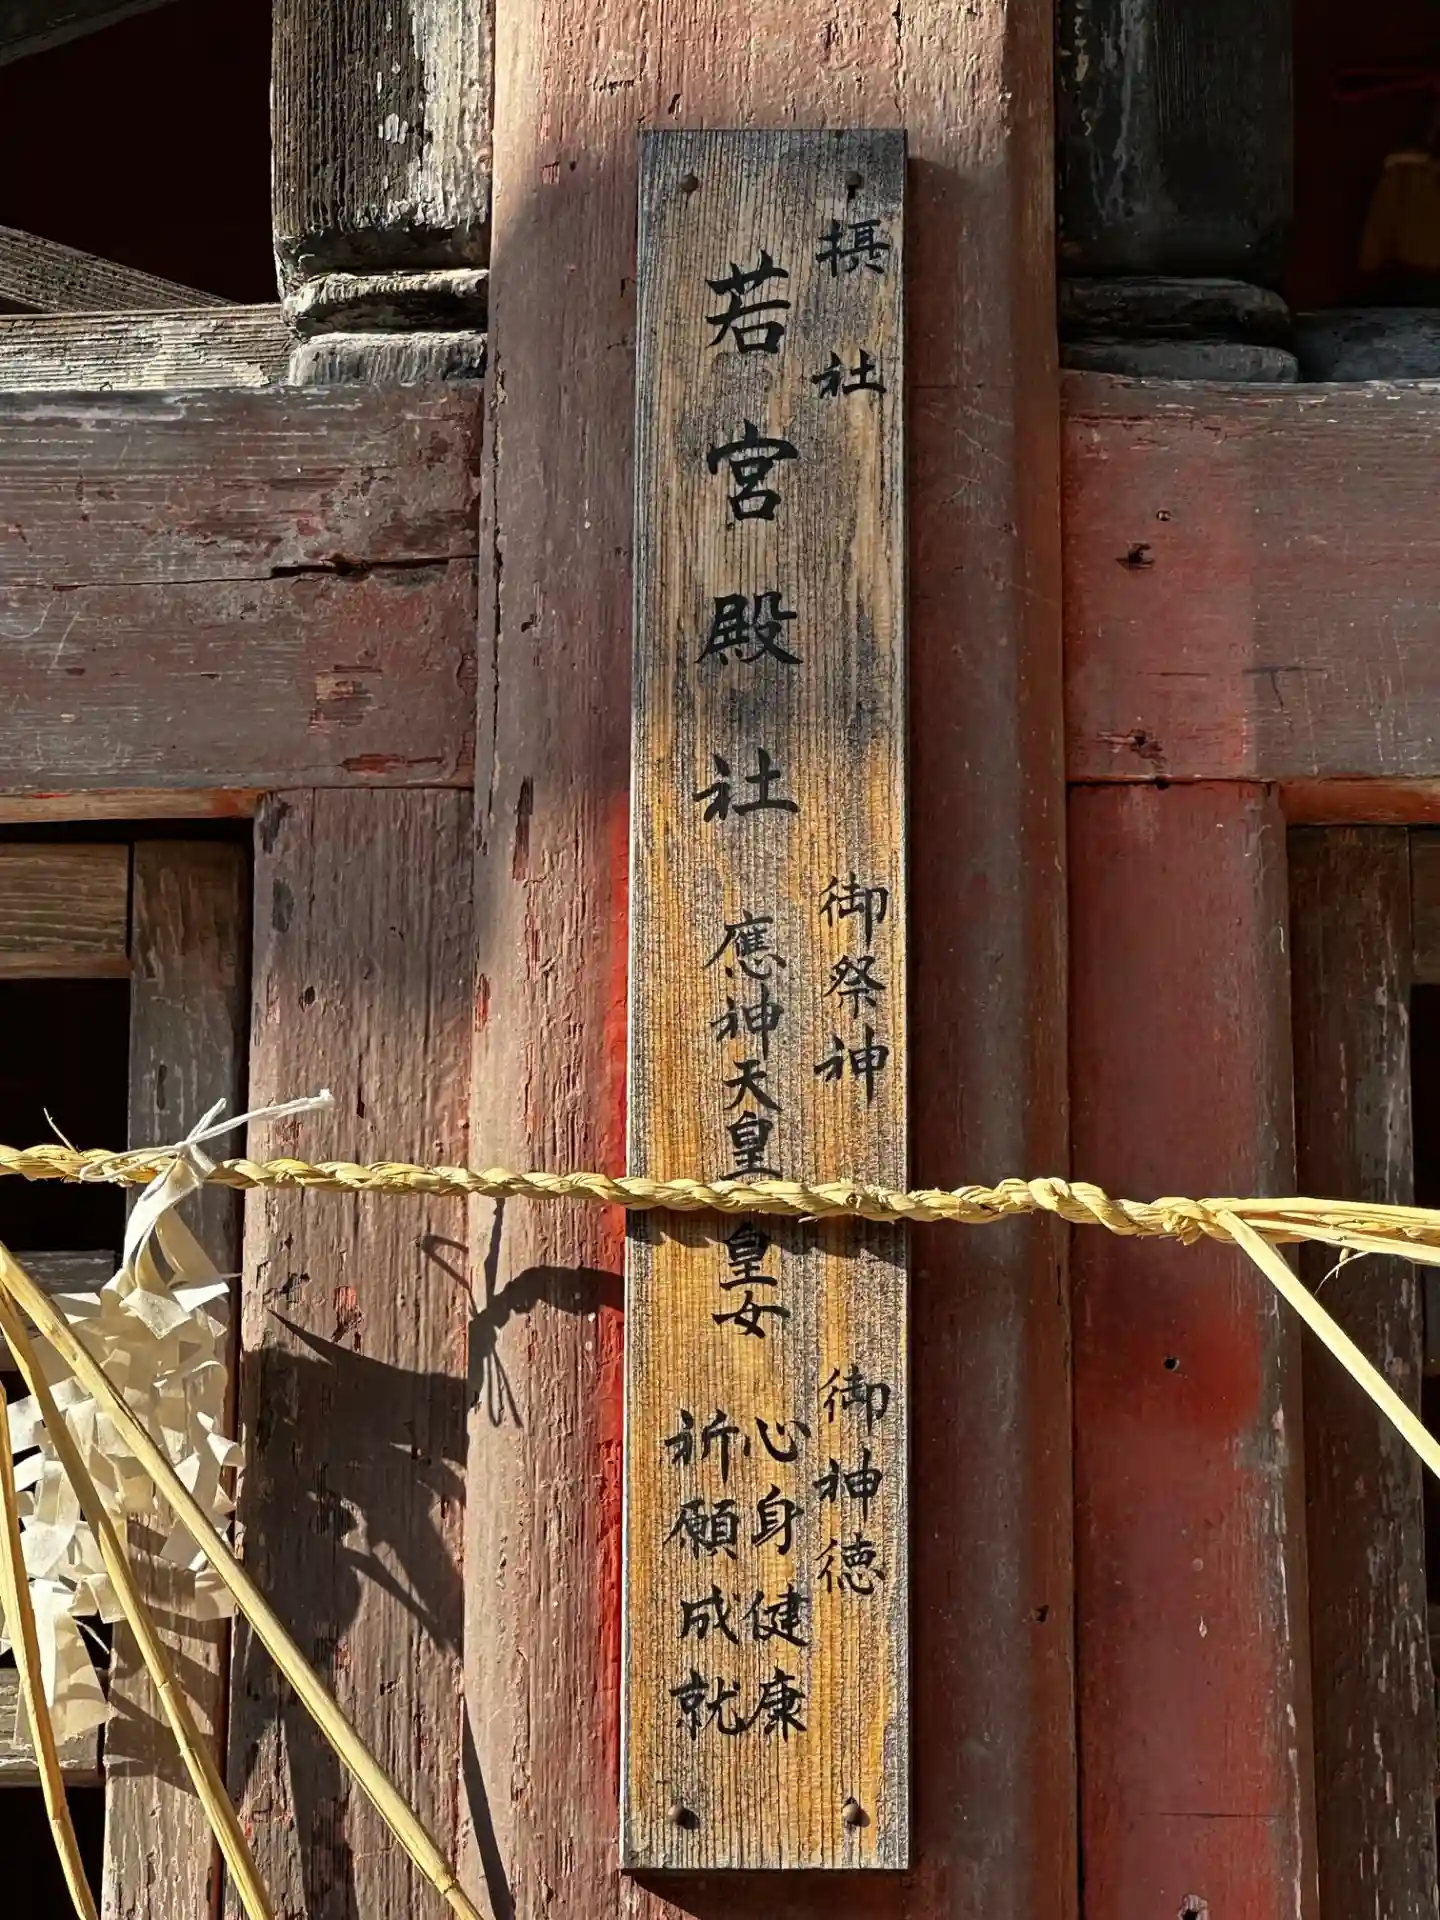 摂社
若宮殿社
御祭神
應神天皇皇皇女
御神徳
心身健康
祈願成就